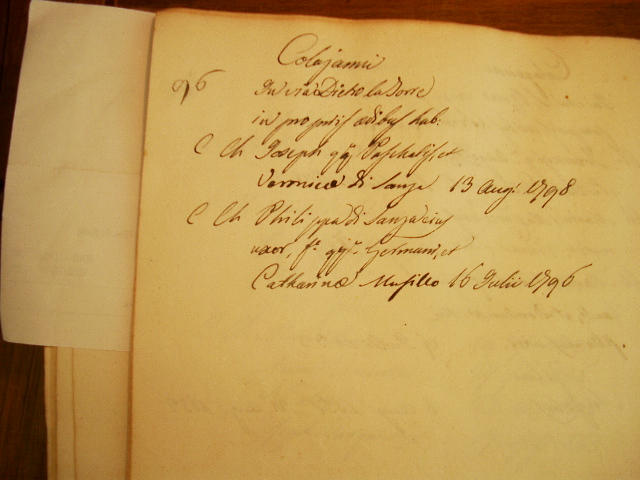 Colajanni
96 In via Dietro la Torre
in proprijs ædibus hab:
C Ch Joseph qq Paschalis, et
Veronicæ di Sanza 13 Aug. 1798
C Ch Philippa di Sanza eius
uxor, fa qq. Germani, et
Catharinæ Musillo 16 Julii 1796